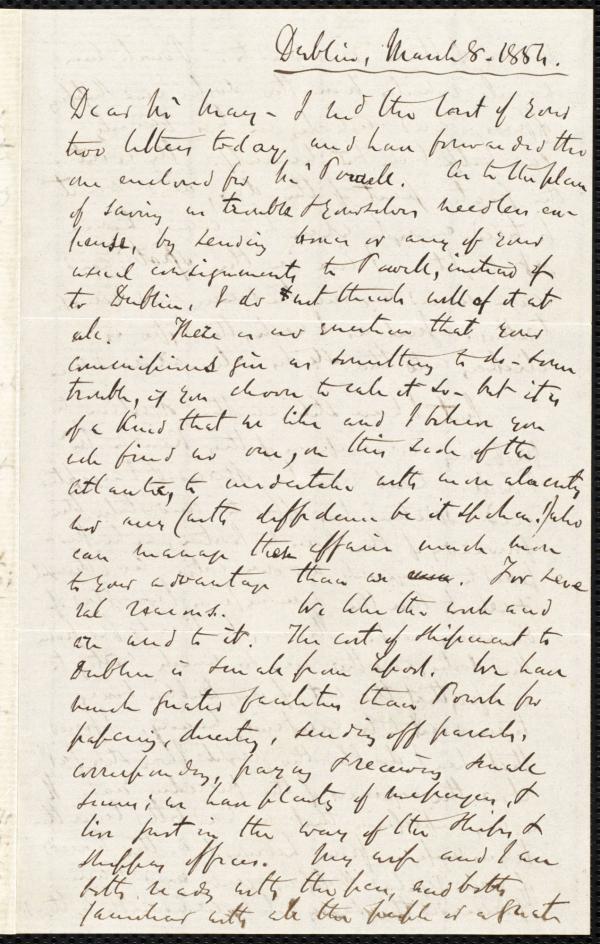 Dublin, March 8. 1854.
Dear Mr May - I recd the last of your
two letters today, and have forwarded the
one enclosed for Mr Powell. As to the plan
of saving us trouble & yourselves needless ex-
pense, by sending some or any of your
usual consignments to Powell, instead of
to Dublin, I do not think well of it at
all. There is no question that your
commissions give us something to do - some
trouble, if you choose to call it so - but it is
of a kind that we like and I believe you
will find no one, on this side of the
Atlantic, to undertake with more alacrity
nor any (with diffidence be it spoken!) who
can manage these affairs much more
to your advantage than we. For seve
ral reasons. We like the work and
are used to it. The cost of shipment to
Dublin is small from Lpool. We have
much greater facilities than Powell for
papering, directing, sending off parcels,
corresponding, paying & receiving small
sums; we have plenty of messengers, &
live just in the way of the ships &
shipping offices. My wife and I are
both ready with the pen, and both
familiar with all the people or a great